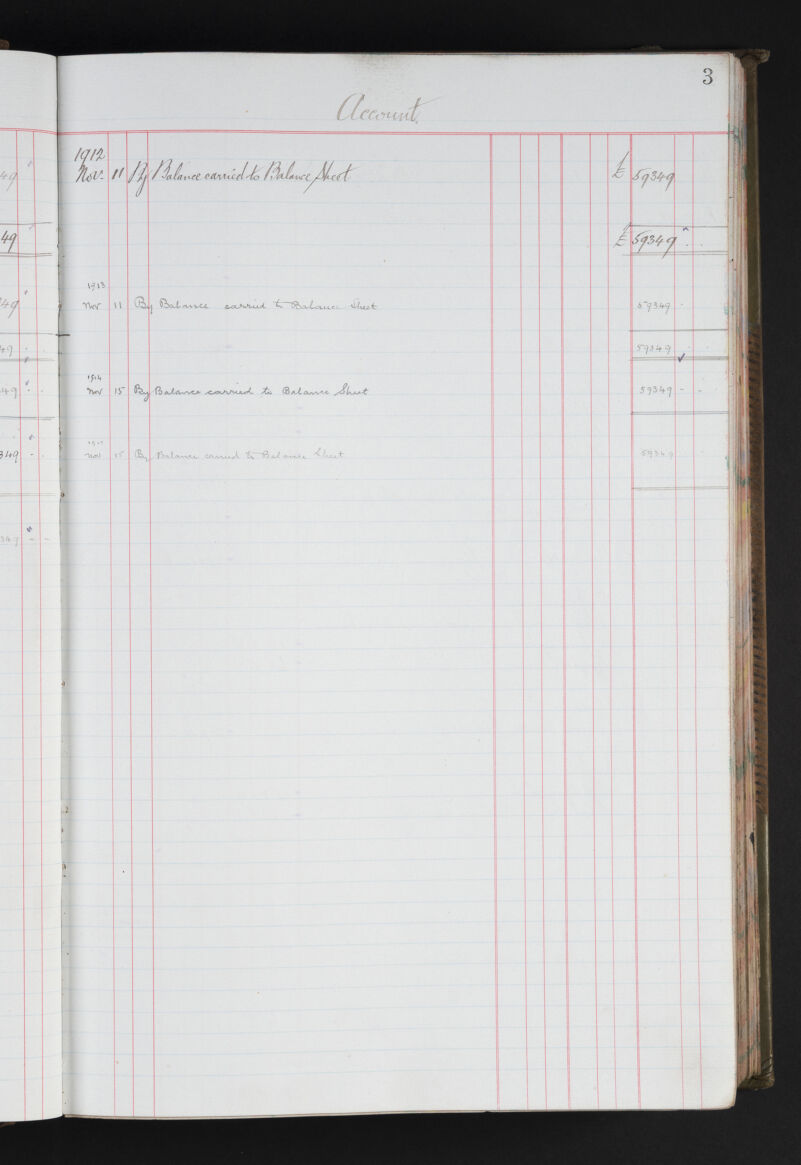 3
Account.
1912
Nov. 11 By Balance carried to Balance Sheet £ 59349
£ 59349
1913
Nov 11 By Balance carried to Balance Sheet 59349
59349
1914
Nov 15 By Balance carried to Balance Sheet 59349 - -
Nov 15 By Balance carried to Balance Sheet 59349
49
49
49
49
49
349 -
349 - -